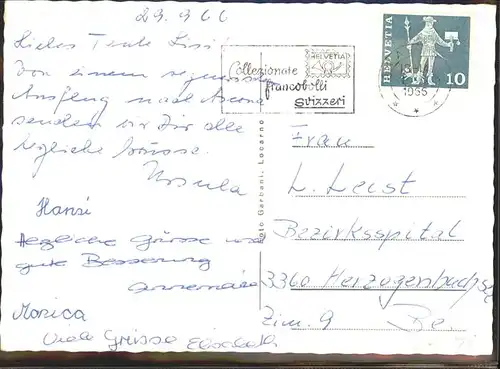 29. 9 66
Liebes Tante Lisi
Von einem
Ausflug nach Ascona
senden wir Dir alle
herzliche Grüsse.
Ursula
Hansi
Herzliche Grüsse und
gute Besserung
Annemarie
Monica
Viele Grüsse Elisabeth
Collezionate
francobolli
svizzeri
HELVETIA
HELVETIA
10
1966
Foto Garbani, Locarno
Frau
L. Leist
Bezirksspital
3360 Herzogenbuchsee
Zim. 9 Be.